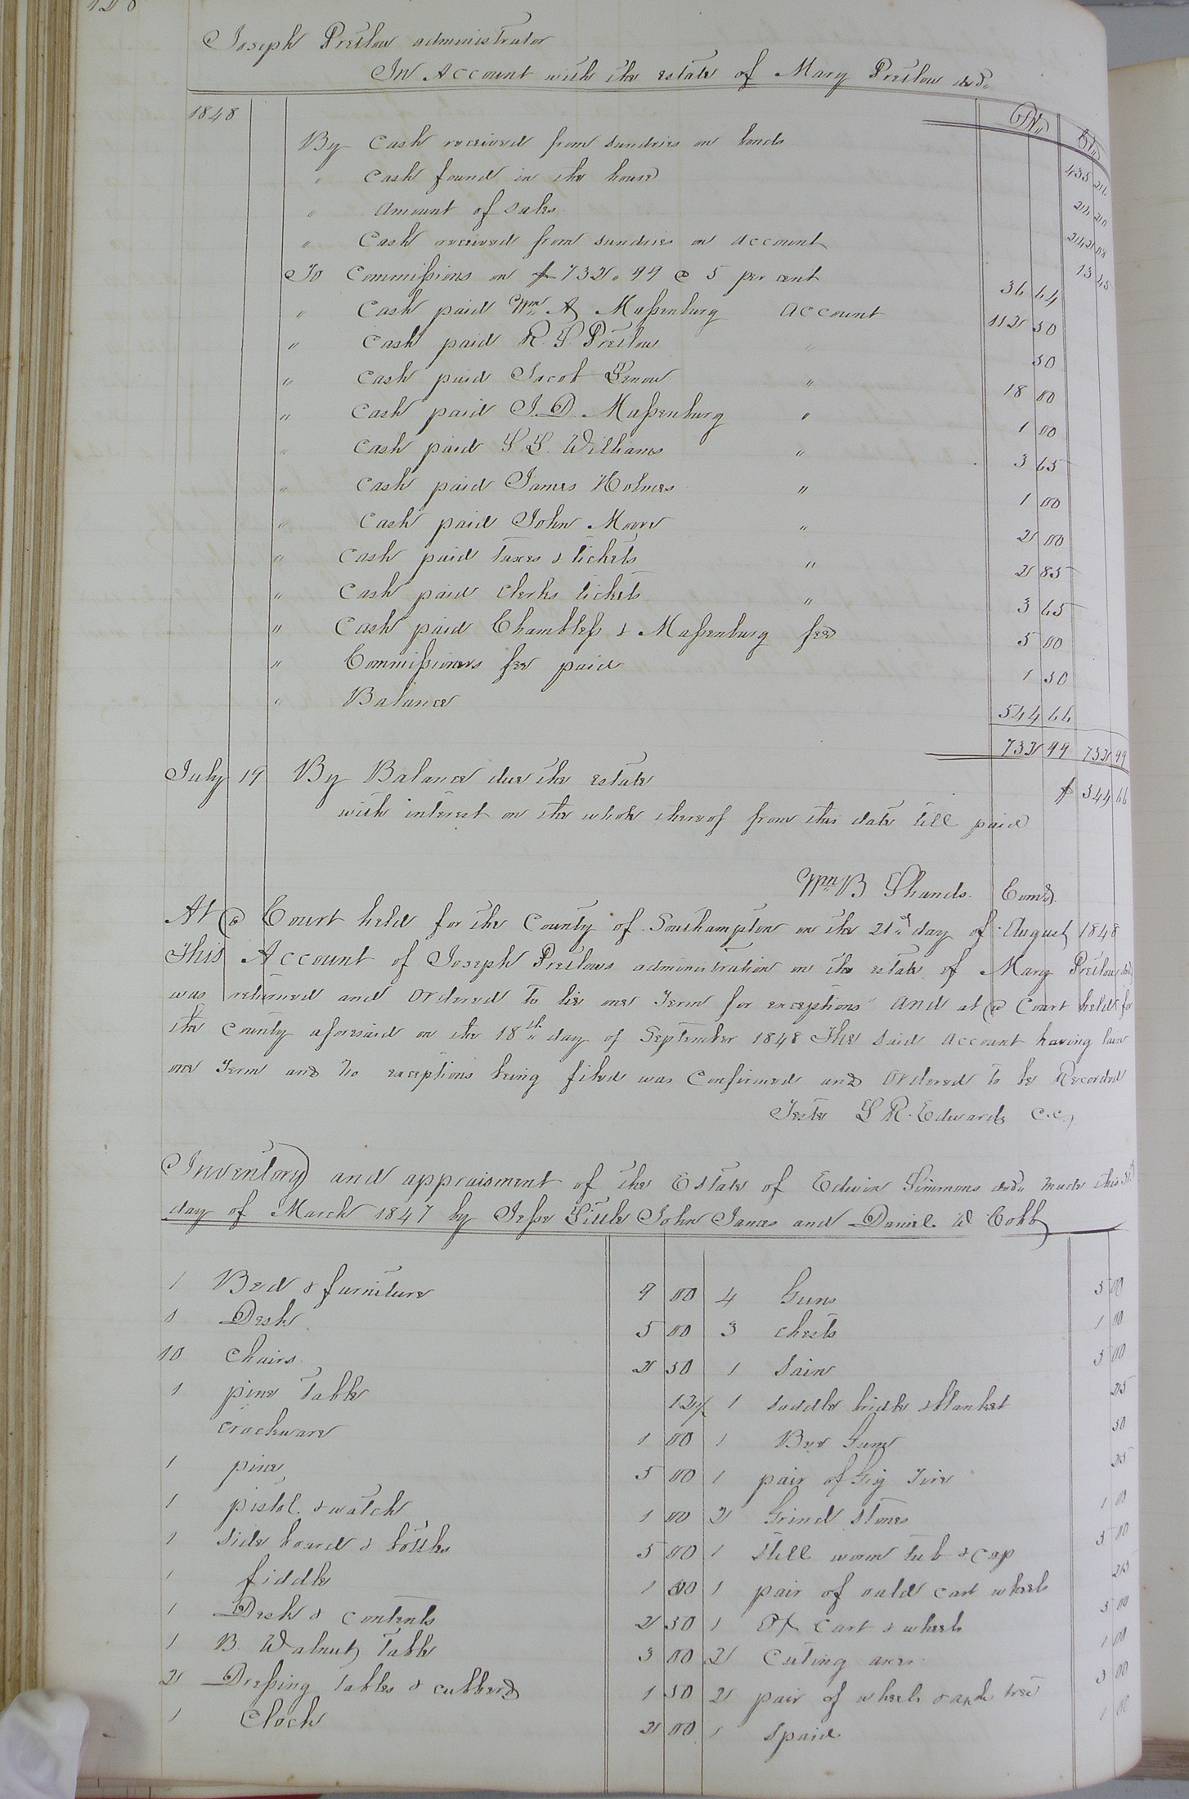 Joseph Pretlow administrator
In Account with the estate of Mary Pretlow decd.
1848 Dr. Cr.
By Cash received from sundries on bonds 435 26
" Cash found in the house
" Amount of sales
" Cash received from sundries on account 13 45
To Commissions on $732.99 @ 5 per cent 36 64
" Cash paid Wm A Massenburg Account 112 50
" Cash paid R S Pretlow " 50
" Cash paid Jacob " 18 00
" Cash paid J. D. Massenburg " 1 00
" Cash paid Williams " 3 65
" Cash paid James Holmes " 1 00
" Cash paid John Moore " 2 00
" Cash paid taxes & tickets " 2 85
" Cash paid Clerks tickets " 3 65
" Cash paid Chambless & Massenburg fee 5 00
" Commissioners fee paid 1 50
" Balance 544 66
732 99 732 99
July 19 By Balance due the estate $ 544 66
with interest on the whole thereof from this date till paid
Wm B Shands Comr.
At a Court held for the County of Southampton on the 21st day of August 1848
This Account of Joseph Pretlows administration on the estate of Mary Pretlow decd
was returned and ordered to lie one Term for exceptions and at a Court held for
the County aforesaid on the 18th day of September 1848 The said account having lain
one Term and no exceptions being filed was Confirmed and ordered to be Recorded
Teste L R. Edwards C.C.
Inventory and appraisment of the Estate of Edwin Simmons decd. made this
day of March 1847 by Jesse Little John James and Daniel W Cobb
1 Bed & furniture 9 00 4 Guns 5 00
1 Desk 5 00 3 chests 1 00
10 Chairs 2 50 1 Sain 3 00
1 pine Table 12½ 1 saddle bridle & blanket 25
crockware 1 00 1 Bee Gum 50
1 5 00 1 pair of Gig Tire 25
1 pistol & watch 1 00 2 Grind stones 1 00
1 Side board & bottles 5 00 1 Still worm tub & cap 5 00
1 fiddle 1 00 1 pair of ould cart wheels 25
1 Desk & contents 2 50 1 Ox Cart & wheels 5 00
1 B. Walnut Table 3 00 2 Cuting axes 1 00
2 Dressing tables & cubberd 1 50 2 pair of wheels & axle tree 3 00
1 Clock 2 00 1 Spaid 1 00